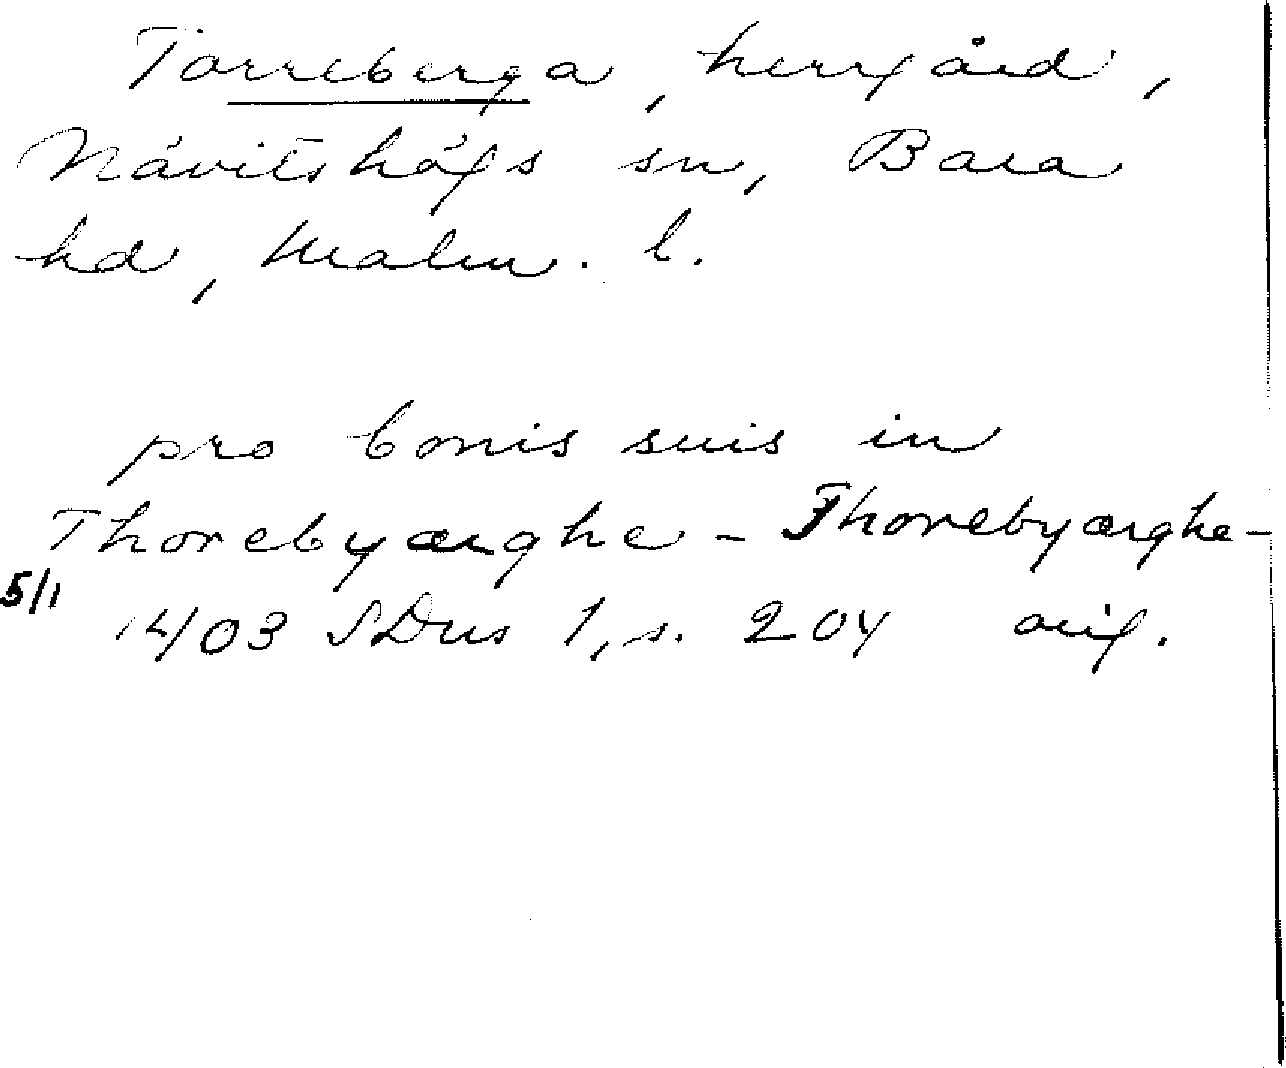 Torreberga, herrgård,
Nävitshögs sn, Bara
hd, Malm. l.
pro bonis suis in
Thorebyærghe - Thorebyærghe -
5/1
1403 SDns 1, s. 204 orig.